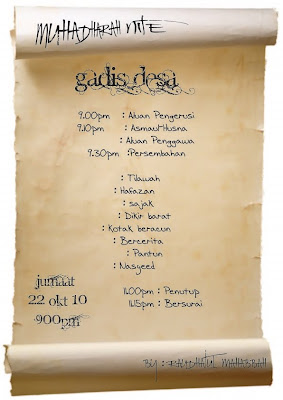 MUHADHARAH NITE
gadis desa
9.00pm : Aluan Pengerusi
9.10pm : Asmaul Husna
: Aluan Penggawa
9.30pm :Persembahan
: Tilawah
: Hafazan
: sajak
: Dikir barat
: Kotak beracun
: Bercerita
: Pantun
: Nasyeed
jumaat
22 okt 10
900pm
11.00pm : Penutup
11.15pm : Bersurai
BY : RAUDHATUL MAHABBAH